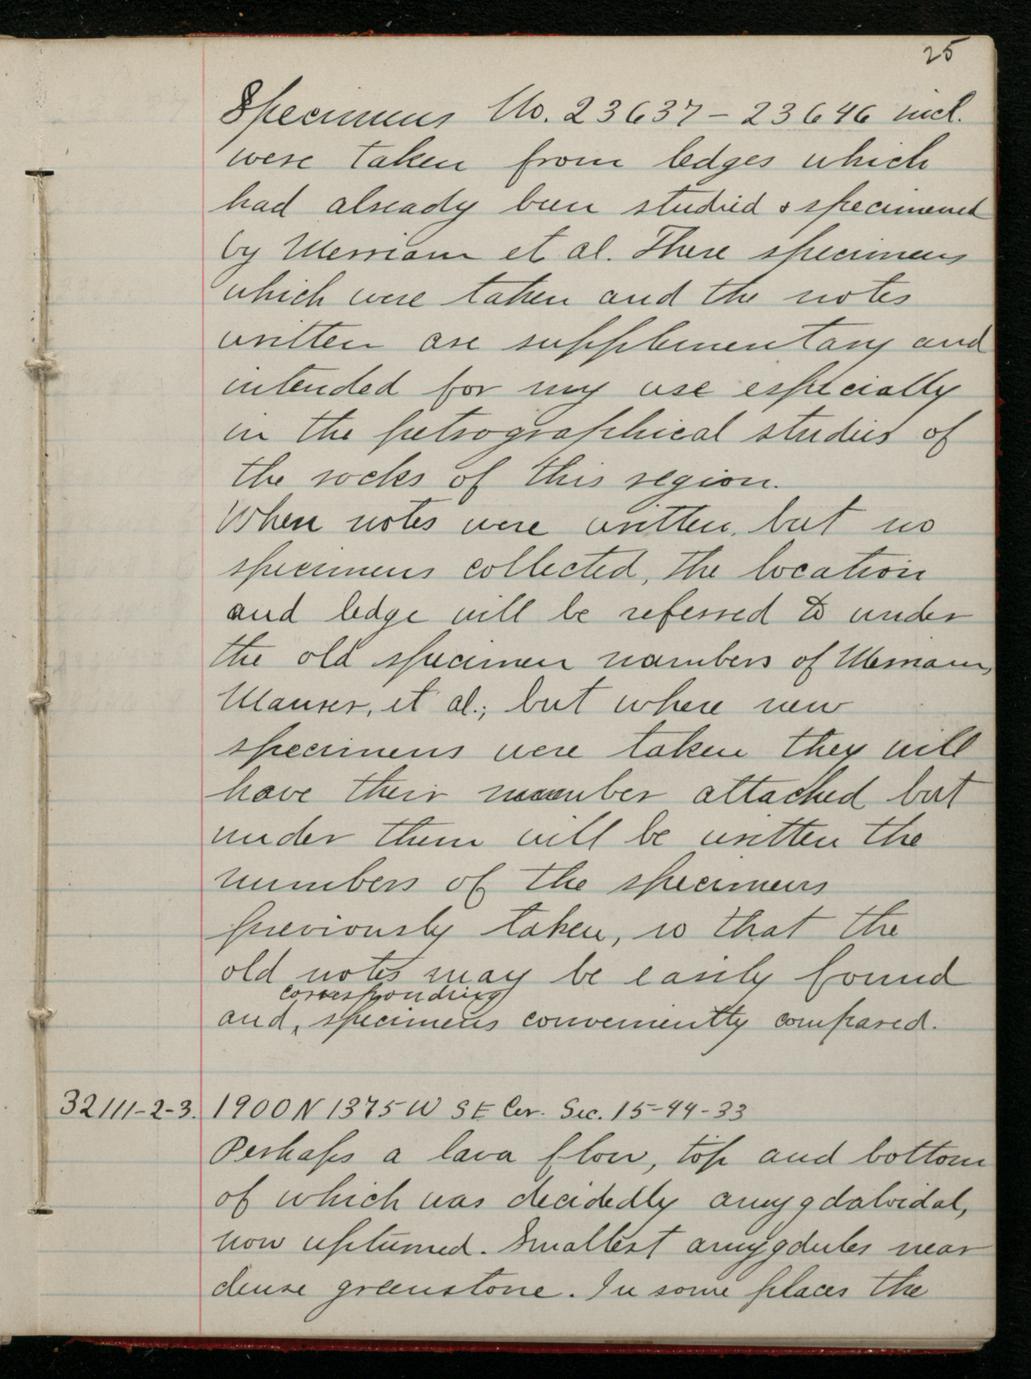 25
Specimens No. 23637 – 23646 incl.
were taken from ledges which
had already been studied & specimened
by Merriam et al. These specimens
which were taken and the notes
written are supplementary and
intended for my use especially
in the petrographical studies of
the rocks of this region.
When notes were written, but no
specimens collected, the location
and ledge will be referred to under
the old specimen numbers of Merriam,
et al.; but where new
specimens were taken they will
have their number attached but
under them will be written the
numbers of the specimens
previously taken, so that the
old notes may be easily found
corresponding
and ‸ specimens conveniently compared.
32111-2-3. 1900 N 1375 W SE Cor. Sec. 15-44-33
Perhaps a lava flow, top and bottom
of which was decidedly amygdaloidal,
now upturned. Smallest amygdules near
dense greenstone. In some places the